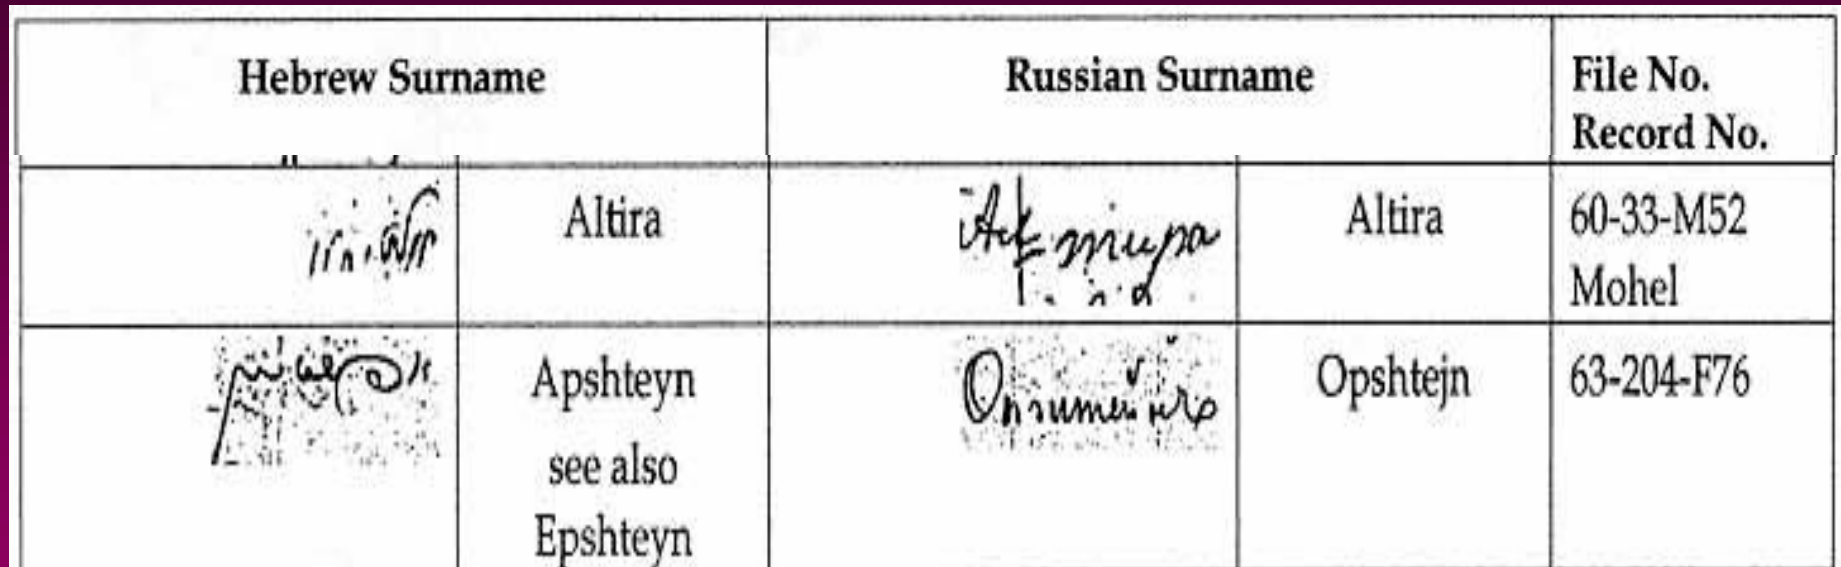 Hebrew Surname
Russian Surname
File No.
Record No.
Altira
Altira
60-33-M52
Mohel
Apshteyn
see also
Epshteyn
Opshtejn
63-204-F76